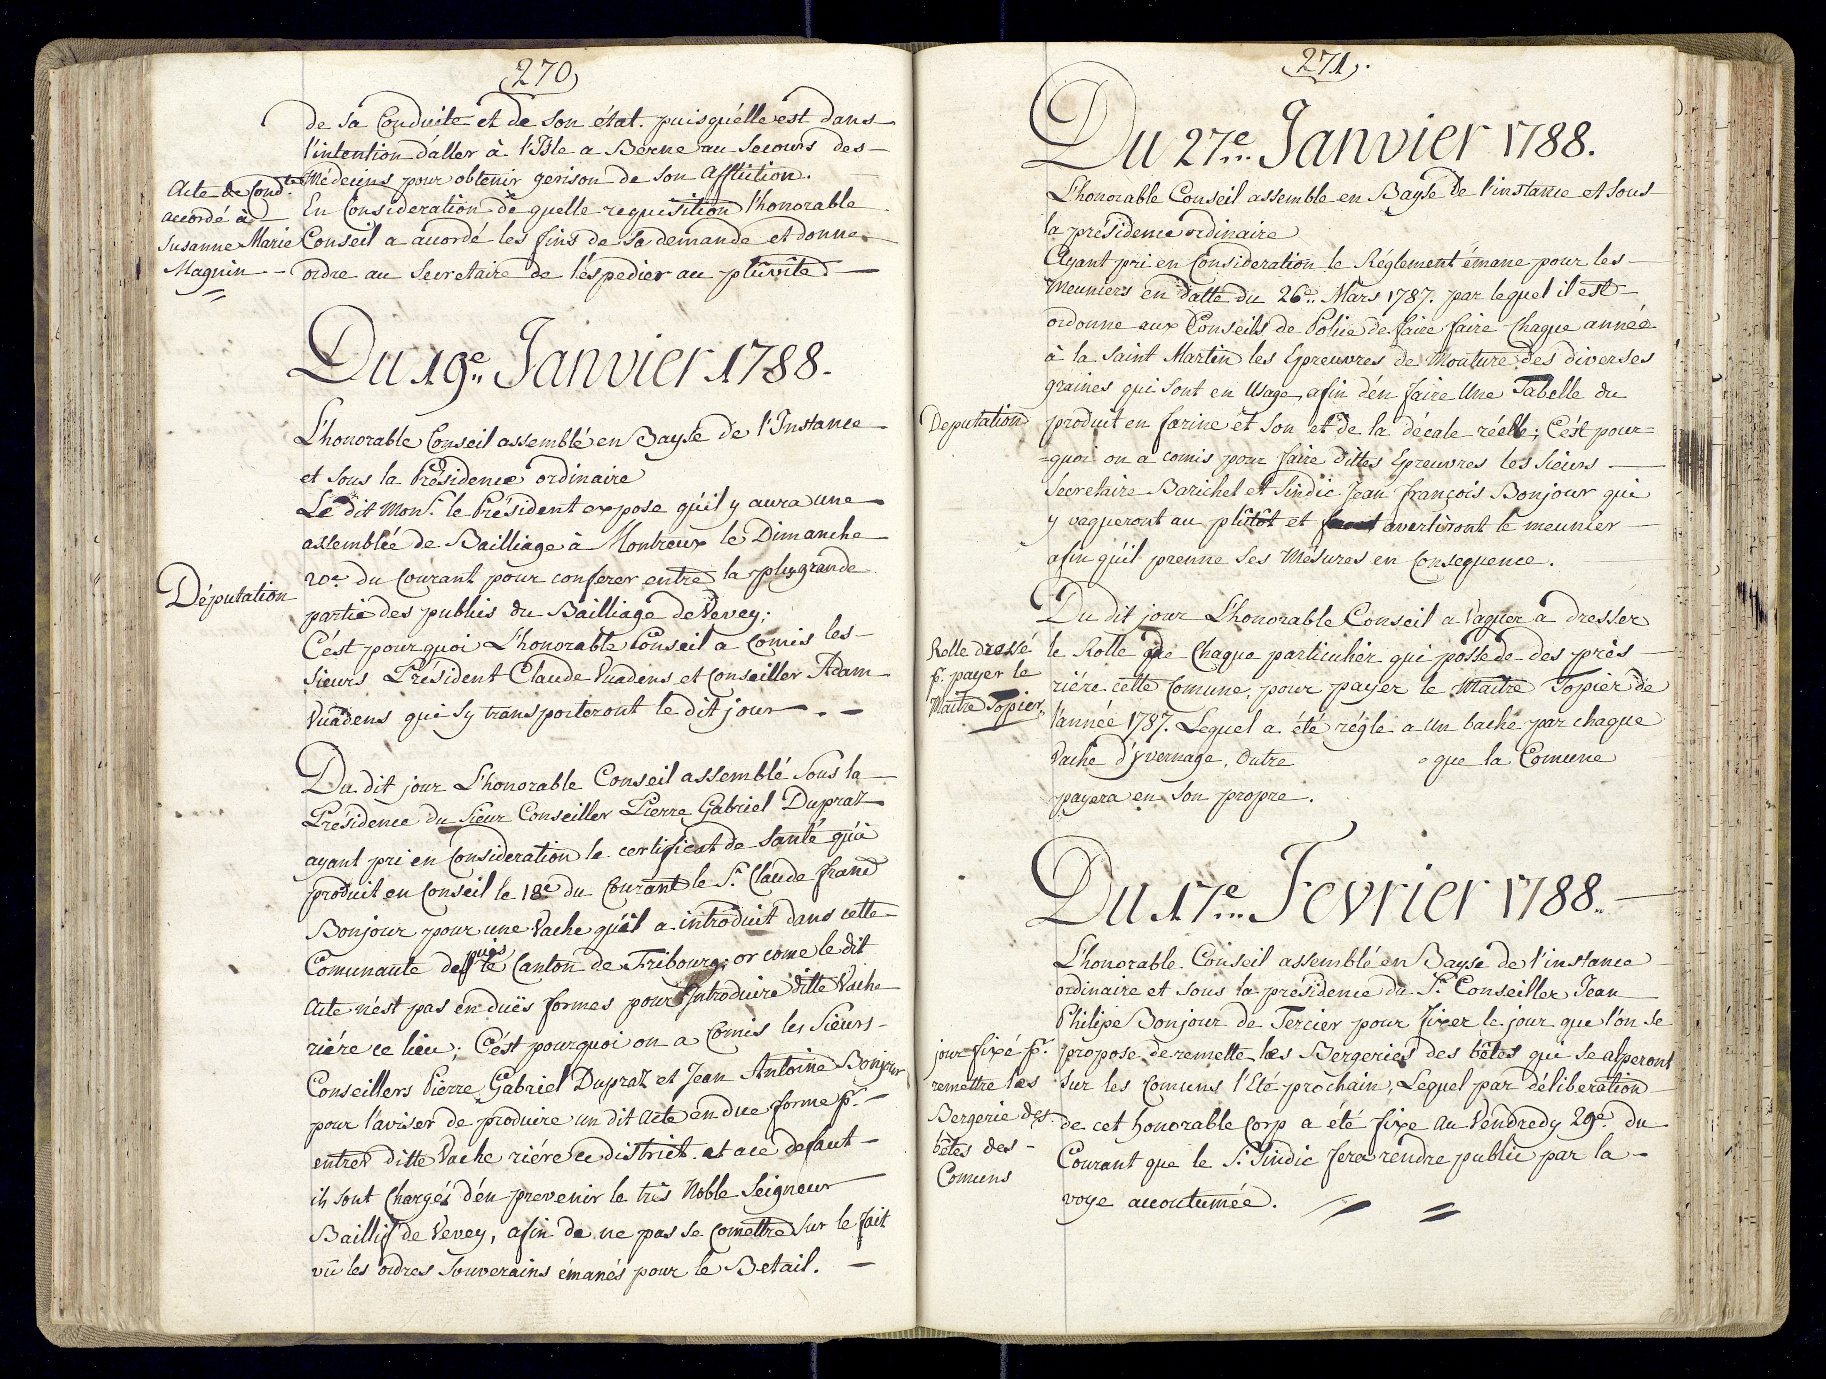 270
de sa Conduite et de son état. puisqu'élle est dans
l'intention d'aller à l'Isle a Berne au Secours des
Médecins pour obtenir gerison de son affliction.
Acte de Cond.te
accordé à
Susanne Marie
Magnin
En Consideration de quelle requisition l'honorable
Conseil a accordé les fins de sa demande et donne
ordre au Secretaire de l'éxpedier au plûvite
Du 19.e Janvier 1788.
L'honorable Conseil assemblé en Bayse de l'Instance
et sous la Présidence ordinaire
Le dit Mons.r le Président expose qu'il y aura une
assemblée de Bailliage à Montreux le Dimanche
20e du Courant pour conferer entre la plus grande
Députation
partie des publis du Bailliage de Vevey;
C'ést pourquoi L'honorable Conseil a Comis les
Sieurs Président Claude Vuadens et Conseiller Adam
Vuadens qui S'y transporteront le dit jour.
Du dit jour L'honorable Conseil assemblé Sous la
Présidence du Sieur Conseiller Pierre Gabriel Dupraz
ayant pri en Consideration le certificat de Santé qu'à
produit en Conseil le 18e du Courant le S.r Claude franc
Bonjour pour une Vache qu'il a introduit dans cette
Comunaute depuis le Canton de Fribourg; or come le dit
Acte n'ést pas en duës formes pour Introduire ditte Vache
riére ce lieu; C'ést pourquoi on a Comis les Sieurs
Conseillers Pierre Gabriel Dupraz et Jean Antoine Bonjour
pour l'aviser de produire un dit acte en due forme p.r
entrer ditte Vache riére ce district. et a ce defaut
ils sont Chargés d'én prevenir le très Noble Seigneur
Baillif de Vevey, afin de ne pas se Comettre sur le fait
vû les ordres Souverains émanés pour le Betail.
271.
Du 27.e Janvier 1788.
L'honorable Conseil assemble en Bayse de l'instance et sous
la présidence ordinaire
Ayant pri en Consideration le Réglement émane pour les
meuniers en datte du 26.e Mars 1787. par lequel il est
ordonne aux Conseils de Police de faire faire Chaque année
à la Saint Martin les Epreuvres de Mouture des diverses
graines qui sont en Usage, afin d'én faire Une Tabelle du
Deputation
produit en farine et Son et de la décale réelle; C'ést pour=
=quoi on a comis pour faire dittes Epreuvres les Sieurs
Secretaire Barichet et Sindic Jean François Bonjour qui
y vaqueront au plûtôt et avertiront le meunier
afin qu'il prenne Ses Mésures en Consequence.
Du dit jour L'honorable Conseil a Vaquer a dresser
Rolle dressé
p.r payer le
Maitre Topier
le Rolle que Chaque particulier qui possede des près
riére cette Comune, pour payer le Maitre Topier de
l'année 1787. Lequel a été régle a un bache par chaque
Vache d'yvernage, Outre que la Comune
payera en Son propre.
Du 17.e Fevrier 1788.
L'honorable Conseil assemblé en Bayse de l'instance
ordinaire et sous la présidence du S.r Conseiller Jean
Philipe Bonjour de Tercier pour fixer le jour que l'on se
jour fixé p.r
remettre les
Bergerie des
bêtes des
Comuns
propose de remette les Bergeries des bêtes qui se alperont
Sur les Comuns l'Eté prochain, Lequel par déliberation
de cet honorable Corp a été fixe au Vendredy 29e. du
Courant que le S.r Sindic fera rendre public par la
voye accoutumée.